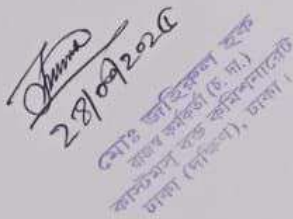 28/09/2025
মোঃ জহিরুল হক
রাজস্ব কর্মকর্তা (চ. দা.)
কাস্টমস বন্ড কমিশনারেট
ঢাকা (দক্ষিণ), ঢাকা।